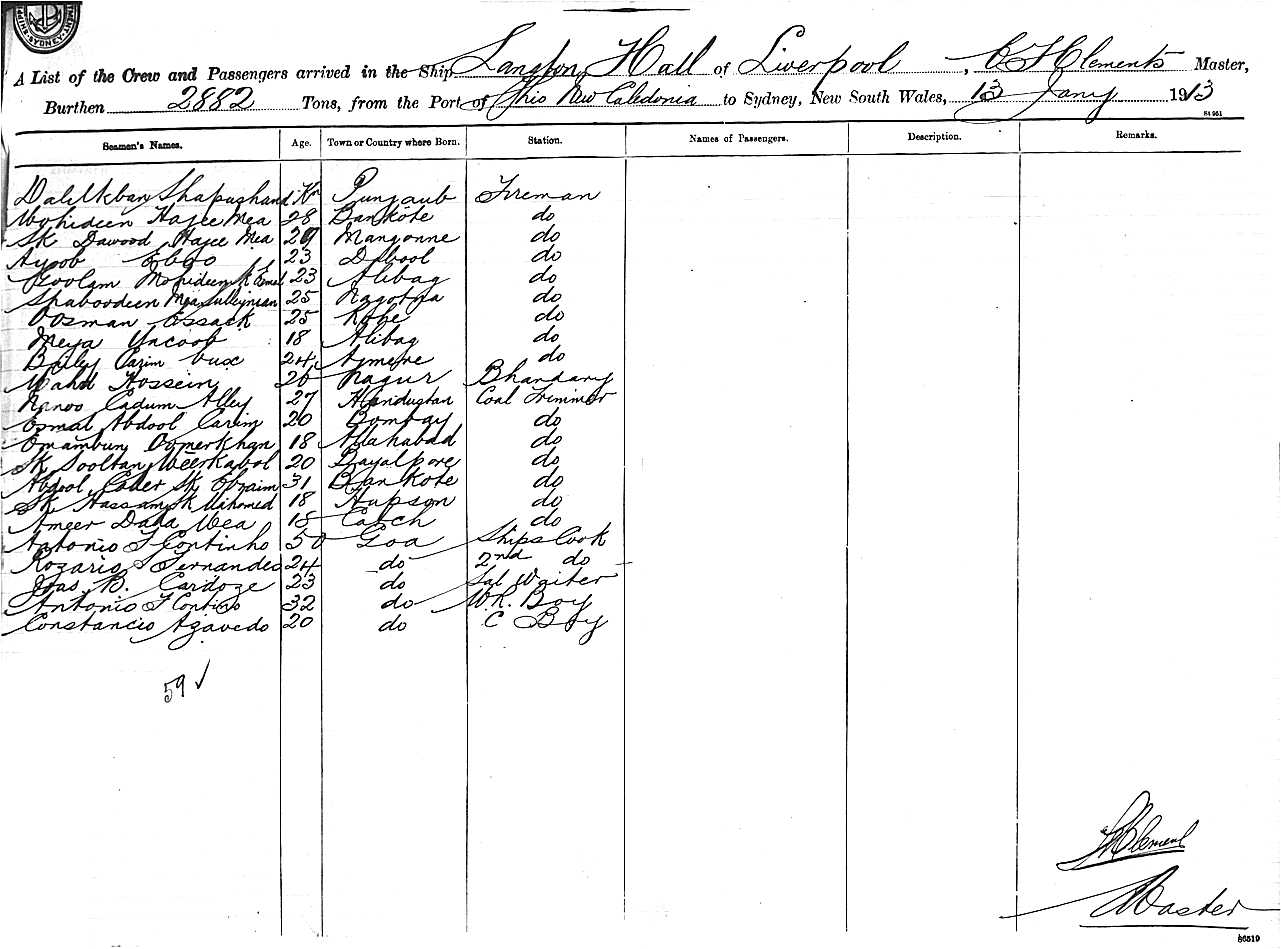 SHIPPING SYDNEY
A List of the Crew and Passengers arrived in the Ship Langton Hall of Liverpool, C F Clements Master,
Burthen 2882 Tons, from the Port of Thio New Caledonia to Sydney, New South Wales, 13 Jany 1913
84961
Seamen's Names. Age. Town or Country where Born. Station. Names of Passengers. Description. Remarks.
Punjaub Fireman
Mohideen Hajee Mea 28 Bankote do
Sk Dawood Hajee Mea do
Ayoob Eboo 23 Dabool do
Goolam Mohideen 23 Alibag do
Shaboodeen Mea Sulleyman 25 Nagotna do
Oosman Essack 25 Kobe do
Meya Yacoob 18 Alibag do
Carim bux 24 Ajmere do
Mahd Hossein 26 Nagur Bhandary
Nanoo Cadum Alley 27 Hindustan Coal Trimmer
Esmal Abdool Carim 20 Bombay do
Emambun Oomerkhan 18 Allahabad do
Sk Sooltan 20 do
Abdool Cader Sk Ebraim 31 Bankote do
Sk Hassam Sk Mahomed 18 do
Ameer Dada Mea 18 Catch do
Antonio F Continho 50 Goa Ships Cook
Rozario S Fernandes 24 do 2nd do
Joas. B. Cardoze 23 do Sal Waiter
Antonio F Contino 32 do W.R. Boy
Constancio Azavedo 20 do C Boy
59 ✓
Clement
Master
86519